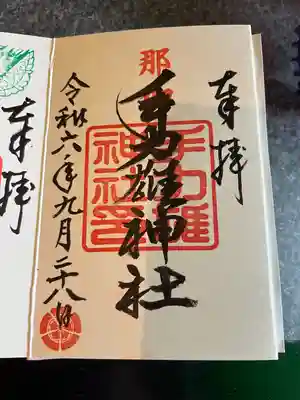 奉拝
那
手力雄神社
手力雄
神社印
令和六年九月二十八日
奉拝